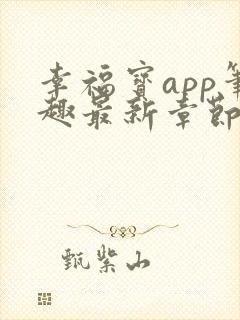 幸福宝app笔
趣最新章节
甄紫山